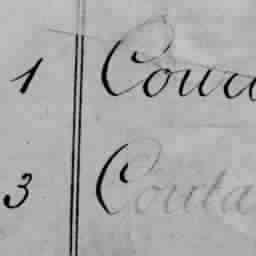 1 Cour
3 Conta